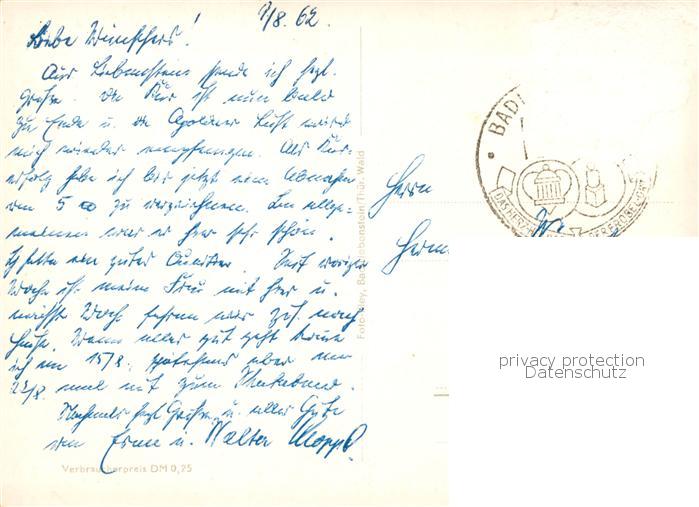 7/8. 62.
Liebe Wünschers!
Aus Liebenstein sende ich herzl.
Grüße. Die Kur ist nun bald
zu Ende u. die Apoldaer Luft wird
mich wieder empfangen. Als Kur-
erfolg habe ich bis jetzt eine Abnahme
von 5 zu verzeichnen. Im allge-
meinen war es hier sehr schön.
Ich hatte ein gutes Quartier. Seit voriger
Woche ist meine Frau mit hier u.
nächste Woche fahren wir zus. nach
Hause. Wenn alles gut geht komme
ich am 15/8. spätestens aber am
22/8 mal mit zum Skatabend.
Nochmals herzl Grüße u. alles Gute
von Erna u. Walter
Verbraucherpreis DM 0,25
Foto: Bad Liebenstein/Thür. Wald
BAD
Herrn
privacy protection
Datenschutz